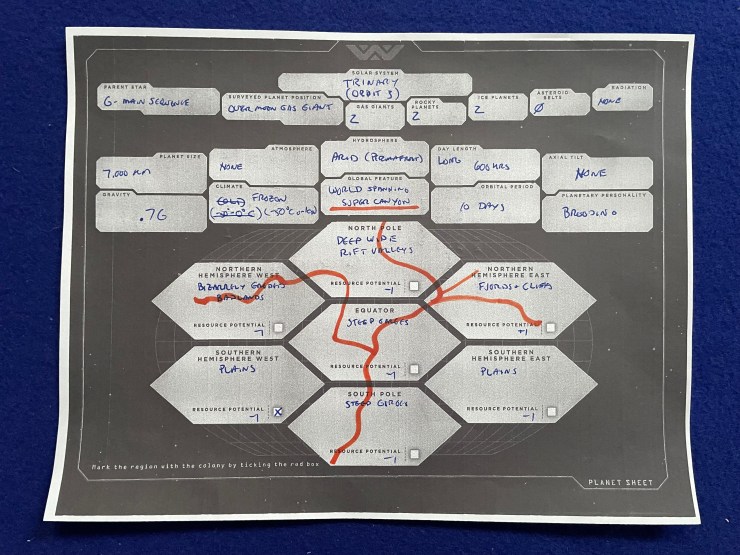 SOLAR SYSTEM
TRINARY
(ORBIT 3)
PARENT STAR
G- MAIN SEQUENCE
SURVEYED PLANET POSITION
OUTER MOON GAS GIANT
GAS GIANTS
2
ROCKY
PLANETS
2
ICE PLANETS
2
ASTEROID
BELTS
Ø
RADIATION
NONE
PLANET SIZE
7,000 KM
ATMOSPHERE
NONE
HYDROSPHERE
ARID (PERMAFROST)
DAY LENGTH
LONG 600 HRS
AXIAL TILT
NONE
GRAVITY
.7G
CLIMATE
COLD FROZEN
GLOBAL FEATURE
WORLD SPANNING
SUPER CANYON
ORBITAL PERIOD
10 DAYS
PLANETARY PERSONALITY
BROODING
NORTH POLE
DEEP WIDE
RIFT VALLEYS
RESOURCE POTENTIAL
-1
NORTHERN
HEMISPHERE WEST
BIZARRELY ERODED
BADLANDS
RESOURCE POTENTIAL
-1
NORTHERN
HEMISPHERE EAST
FJORDS + CLIFFS
RESOURCE POTENTIAL
+1
EQUATOR
STEEP GORGES
RESOURCE POTENTIAL
-1
SOUTHERN
HEMISPHERE WEST
PLAINS
RESOURCE POTENTIAL
-1
X
SOUTHERN
HEMISPHERE EAST
PLAINS
RESOURCE POTENTIAL
-1
SOUTH POLE
STEEP GORGES
RESOURCE POTENTIAL
-1
Mark the region with the colony by ticking the red box
PLANET SHEET